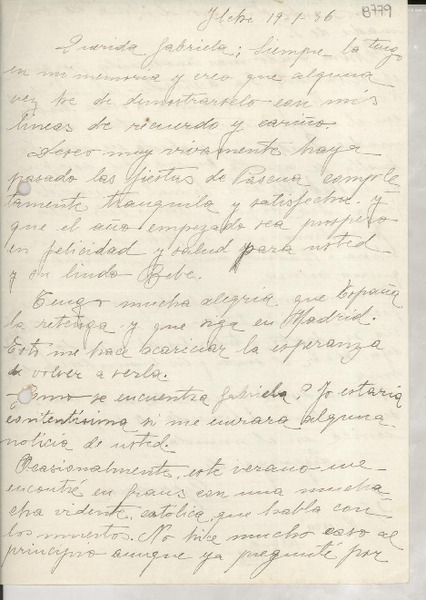 8779
Elche 19-1-36
Querida Gabriela; Siempre la tengo
en mi memoria y creo que alguna
vez he de demostrarselo con mis
lineas de recuerdo y cariño.
Deseo muy vivamente haya
pasado las fiestas de Pascua comple-
tamente tranquila y satisfecha. y
que el año empezado sea prospero
en felicidad y salud para usted
y su lindo Bebe.
Tengo mucha alegria que España
la retenga y que siga en Madrid.
Esto me hace acariciar la esperanza
de volver a verla.
Como se encuentra Gabriela? Yo estaria
contentisima si me enviara alguna
noticia de usted.
Ocasionalmente, este verano me
encontré en con una mucha
cha vidente, catolica, que habla con
los muertos. No hice mucho caso al
principio aunque ya pregunté por